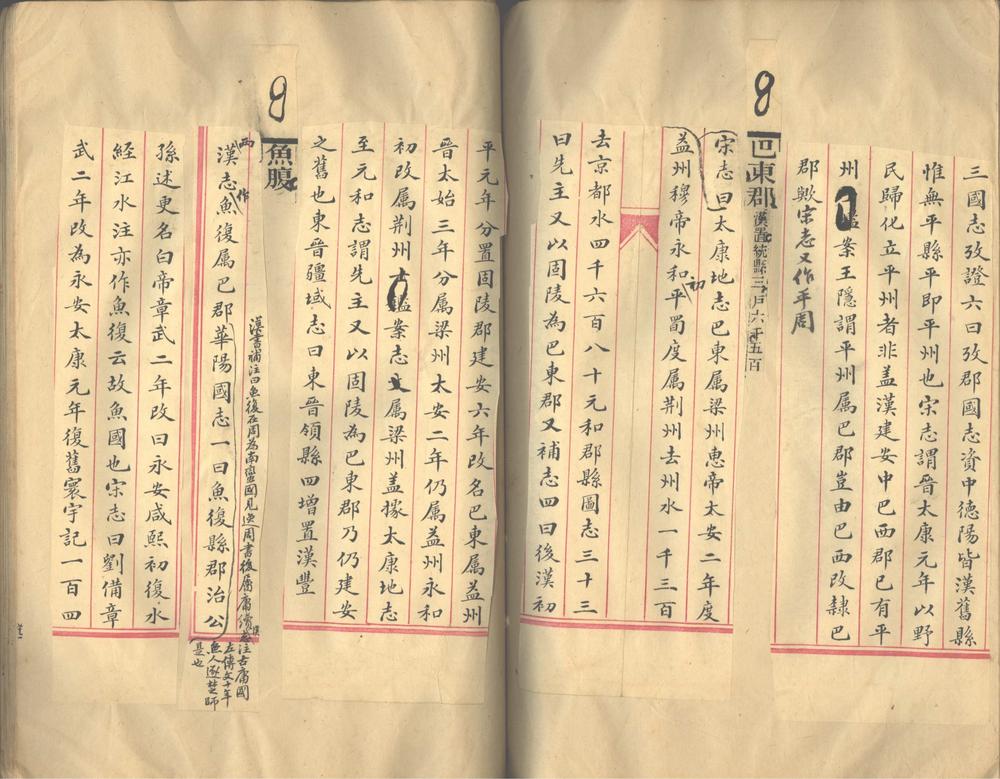 三國志攷證六曰攷郡國志資中德陽皆漢舊縣
惟無平縣平即平州也宋志謂晉太康元年以野
民歸化立平州者非盖漢建安中巴西郡已有平
州鑑案王隱謂平州属巴郡豈由巴西改隸巴
郡歟宋志又作平周
8
巴東郡漢置統縣三戶六千五百
宋志曰太康地志巴東属梁州惠帝太安二年度
益州穆帝永和初平蜀度属荆州去州水一千三百
去京都水四千六百八十元和郡縣圖志三十三
曰先主又以固陵為巴東郡又補志四曰後漢初
平元年分置固陵郡建安六年改名巴東属益州
晉太始三年分属梁州太安二年仍属益州永和
初改属荆州士鑑案志文属梁州盖據太康地志
至元和志謂先主又以固陵為巴東郡乃仍建安
之舊也東晉疆域志曰東晉領縣四增置漢豐
8
魚腹
漢書補注曰魚復在周為南蠻國見逸周書後屬庸
注古庸國
左傳文十年
魚人逐楚師
是也
兩漢志魚作復属巴郡華陽國志一曰魚復縣郡治公
孫述更名白帝章武二年改曰永安咸熙初復水
經江水注亦作魚復云故魚國也宋志曰劉備章
武二年改為永安太康元年復舊寰宇記一百四